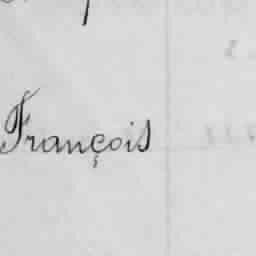 François